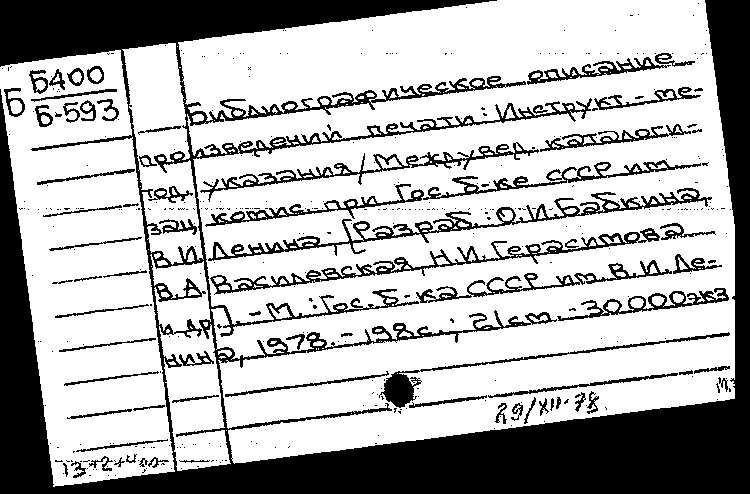 Б Б400
Б-593
Библиографическое описание
произведений печати: Инструкт.-ме-
тод. указания/Междувед. каталоги-
зац. комис. при Гос. б-ке СССР им.
В.И. Ленина; [Разраб.: О.И. Бабкина,
В.А. Василевская, Н.И. Герасимова
и др.]. - М.: Гос. б-ка СССР им. В.И. Ле-
нина, 1978. - 198с.; 21см. - 30 000экз.
29/XII-78